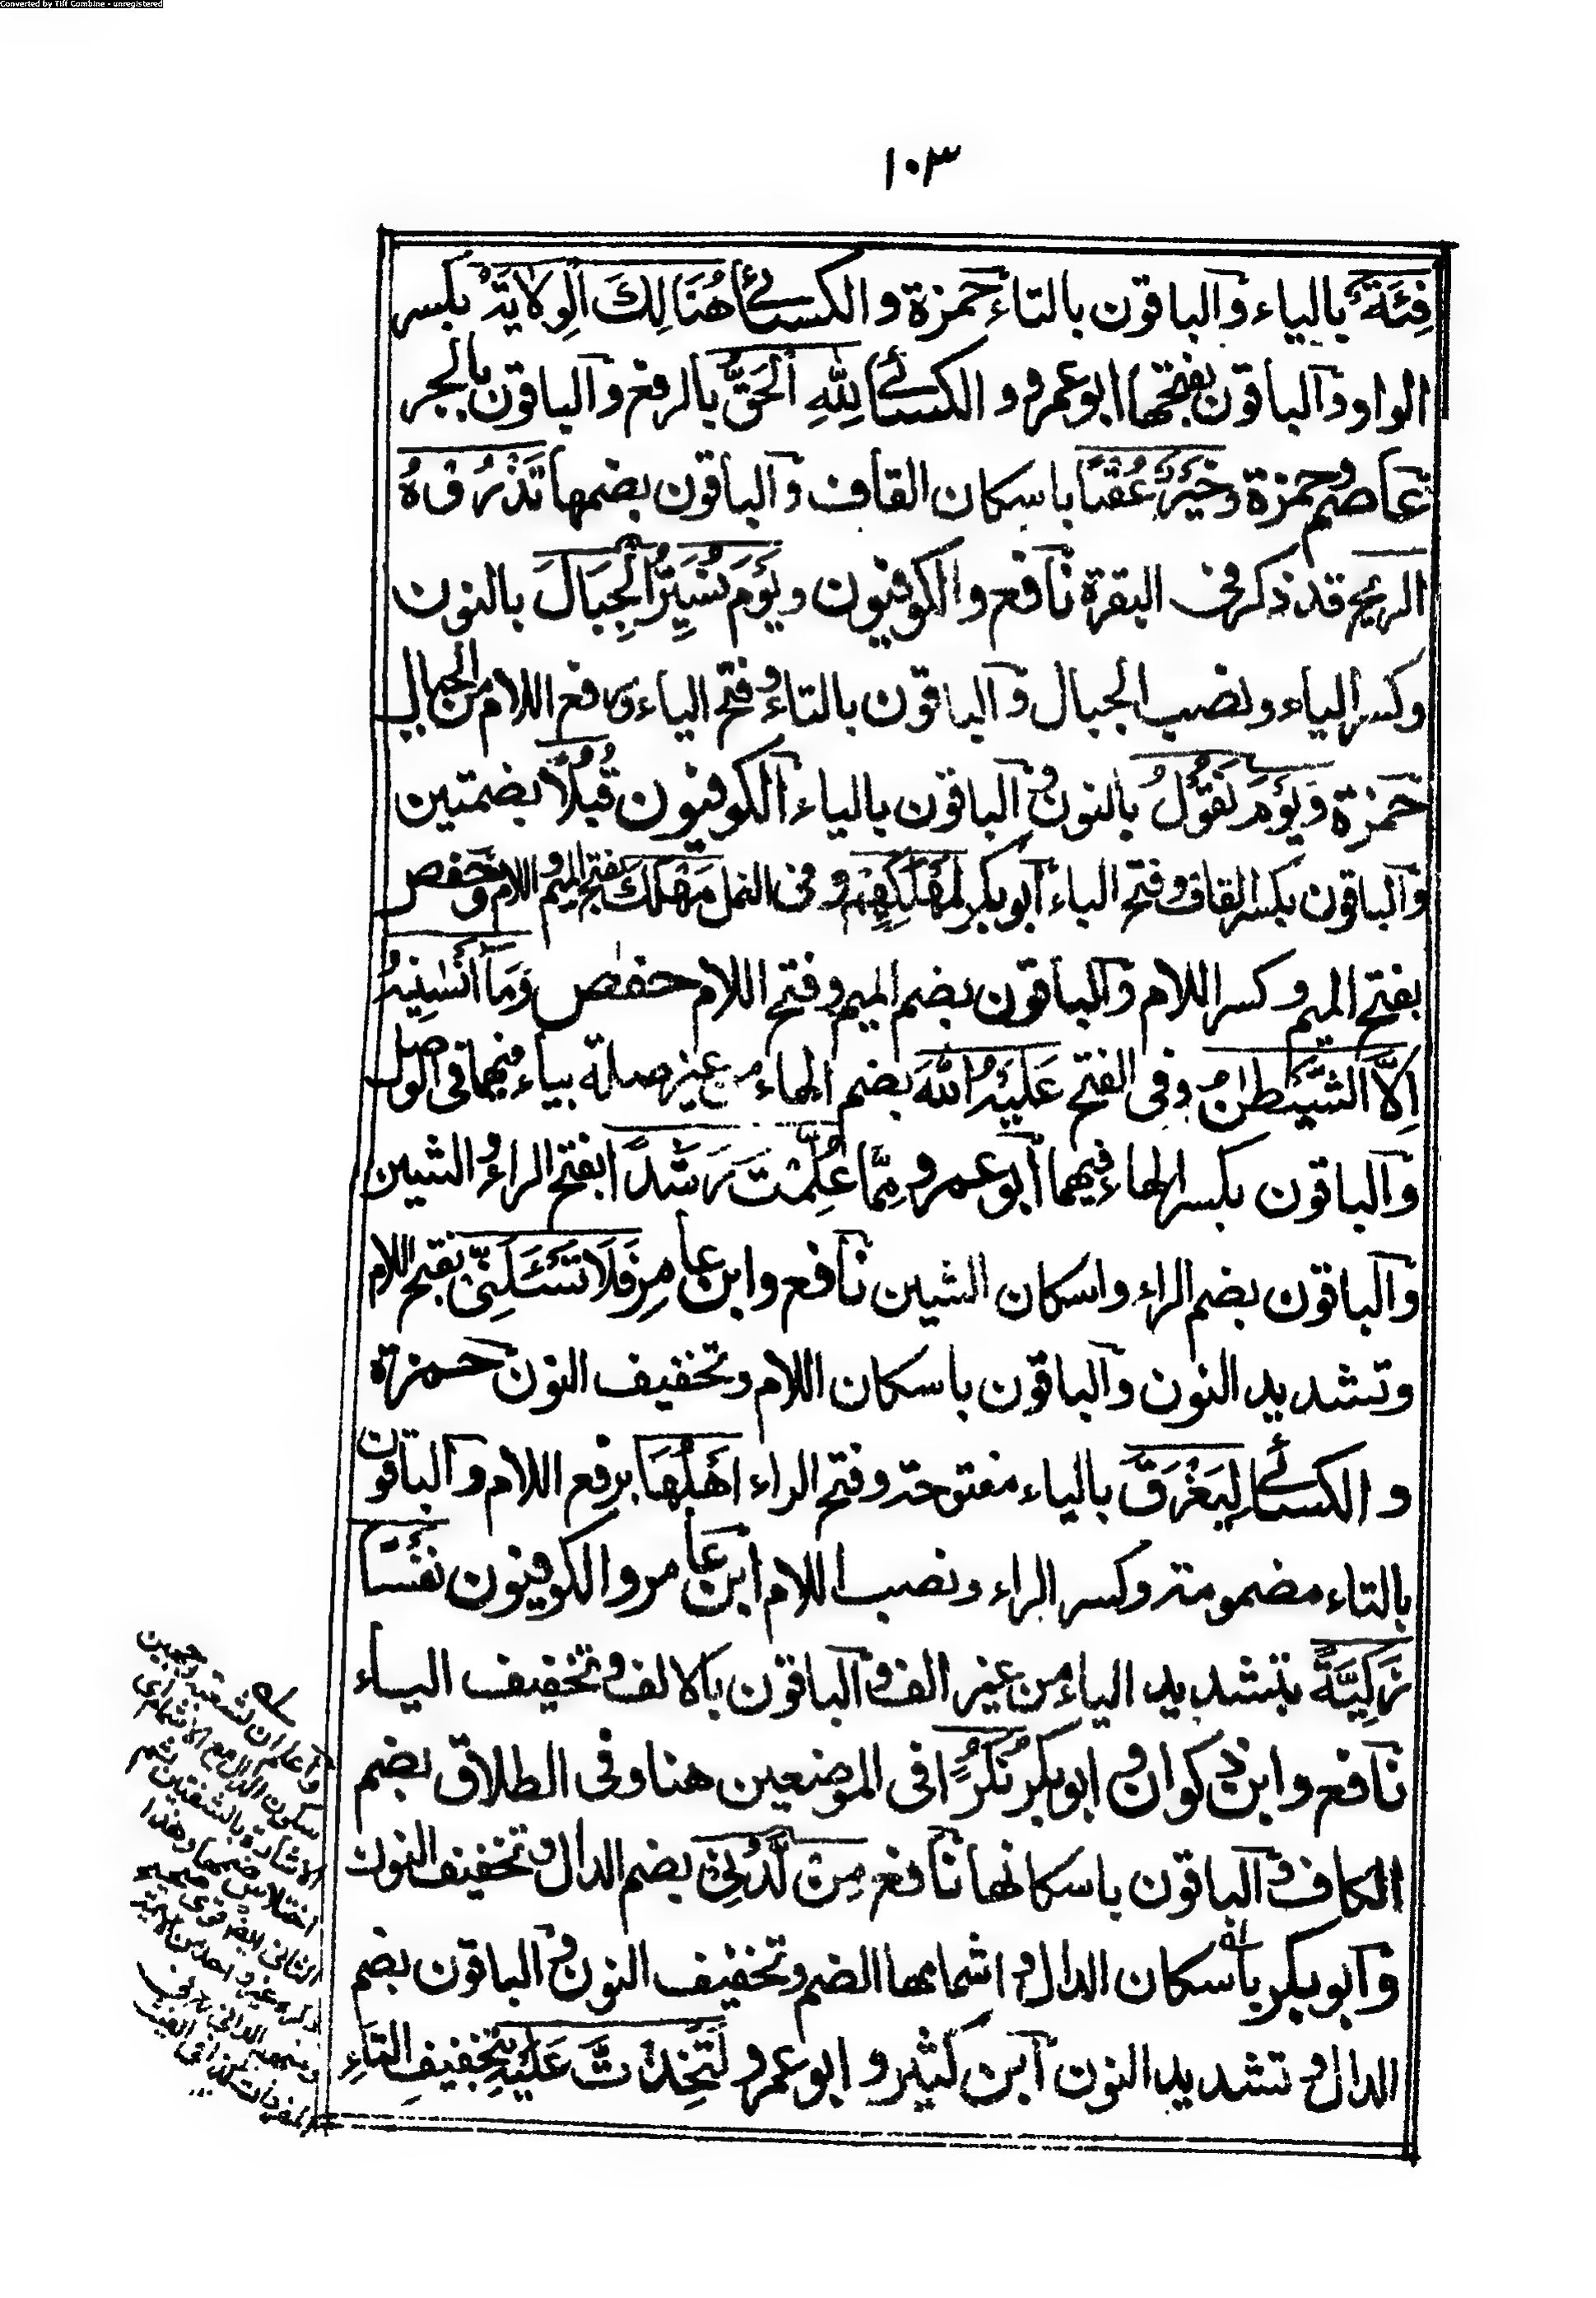 Converted by Tiff Combine - unregistered
١٠٣
فِئَةٌ بالياء والباقون بالتاء حمزة والكسائي هُنَالِكَ الْوِلَايَةُ بكسر
الواو والباقون بفتحها ابو عمرو و الكسائي لِلّهِ الْحَقُّ بالرفع والباقون بالجر
عاصم وحمزة وخَيْرٌ عُقْبًا باسكان القاف والباقون بضمها تَذْرُوْهُ
الريح قد ذكر في البقرة نافع والكوفيون ويَوْمَ نُسَيِّرُ الْجِبَالَ بالنون
وكسر الياء ونصب الجبال والباقون بالتاء وفتح الياء ورفع اللام من الجبال
حمزة وَيَوْمَ نَقُوْلُ بالنون والباقون بالياء الكوفيون قُبُلًا بضمتين
والباقون بكسر القاف وفتح الباء ابو بكر لِمَهْلَكِهِمْ وفي النمل مَهْلَكَ بفتح الميم و اللام وحفص
بفتح الميم وكسر اللام والباقون بضم الميم وفتح اللام حفص وَمَا اَنْسٰنِيْهُ
اِلَّا الشَّيْطٰنُ وفي الفتح عَلَيْهُ اللّٰهَ بضم الهاء من غير صلة بياء فيهما في الوصل
والباقون بكسر الهاء فيهما ابو عمرو مِمَّا عُلِّمْتَ رَشَدًا بفتح الراء والشين
والباقون بضم الراء واسكان الشين نافع وابن عامر فَلَا تَسْئَلَنِّي بفتح اللام
وتشديد النون والباقون باسكان اللام وتخفيف النون حمزة
و الكسائي لِيَغْرَقَ بالياء مفتوحة وفتح الراء اَهْلُهَا برفع اللام والباقون
بالتاء مضمومة وكسر الراء ونصب اللام ابن عامر والكوفيون نَفْسًا
زَكِيَّةً بتشديد الياء من غير الف والباقون بالالف وتخفيف الياء
نافع وابن ذكوان وابو بكر نُكُرًا في الموضعين هنا وفي الطلاق بضم
الكاف والباقون باسكانها نافع مِنْ لَّدُنِي بضم الدال وتخفيف النون
وابو بكر باسكان الدال واشمامها الضم وتخفيف النون والباقون بضم
الدال وتشديد النون ابن كثير و ابو عمرو لَتَخِذْتَ عَلَيْهِ بتخفيف التاءِ
واعلم ان لشعبة وجهين
سكون الدال مع الاشمام اي
الاشارة بالشفتين
اختلاس ضمها وهذا
الثاني